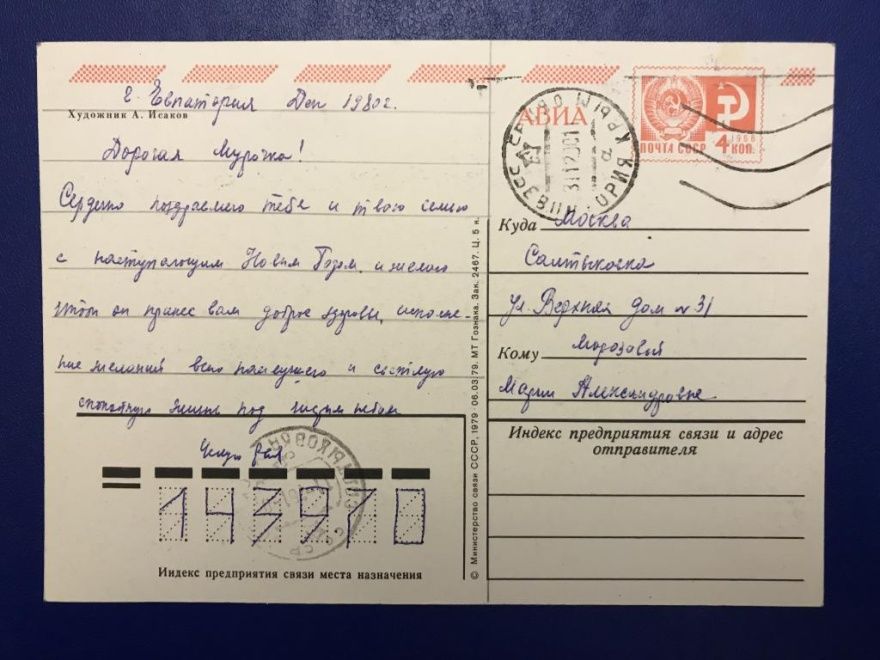 г. Евпатория Дек 1980г.
Художник А. Исаков
Дорогая Мурочка!
Сердечно поздравляю тебя и твою семью
с наступающим Новым Годом, и желаю
чтоб он принес вам доброе здоровье, исполне-
ние желаний всего наилучшего и светлую
спокойную жизнь под мирным небом
Целую
143970
Индекс предприятия связи места назначения
© Министерство связи СССР, 1979 - 06.03.79. МТ Гознака. Зак. 2467. Ц. 5 к.
АВИА
ПОЧТА СССР 4 КОП.
1966
Куда Москва
Салтыковка
ул. Верхняя дом № 31
Кому Морозовой
Марии Александровне
Индекс предприятия связи и адрес
отправителя